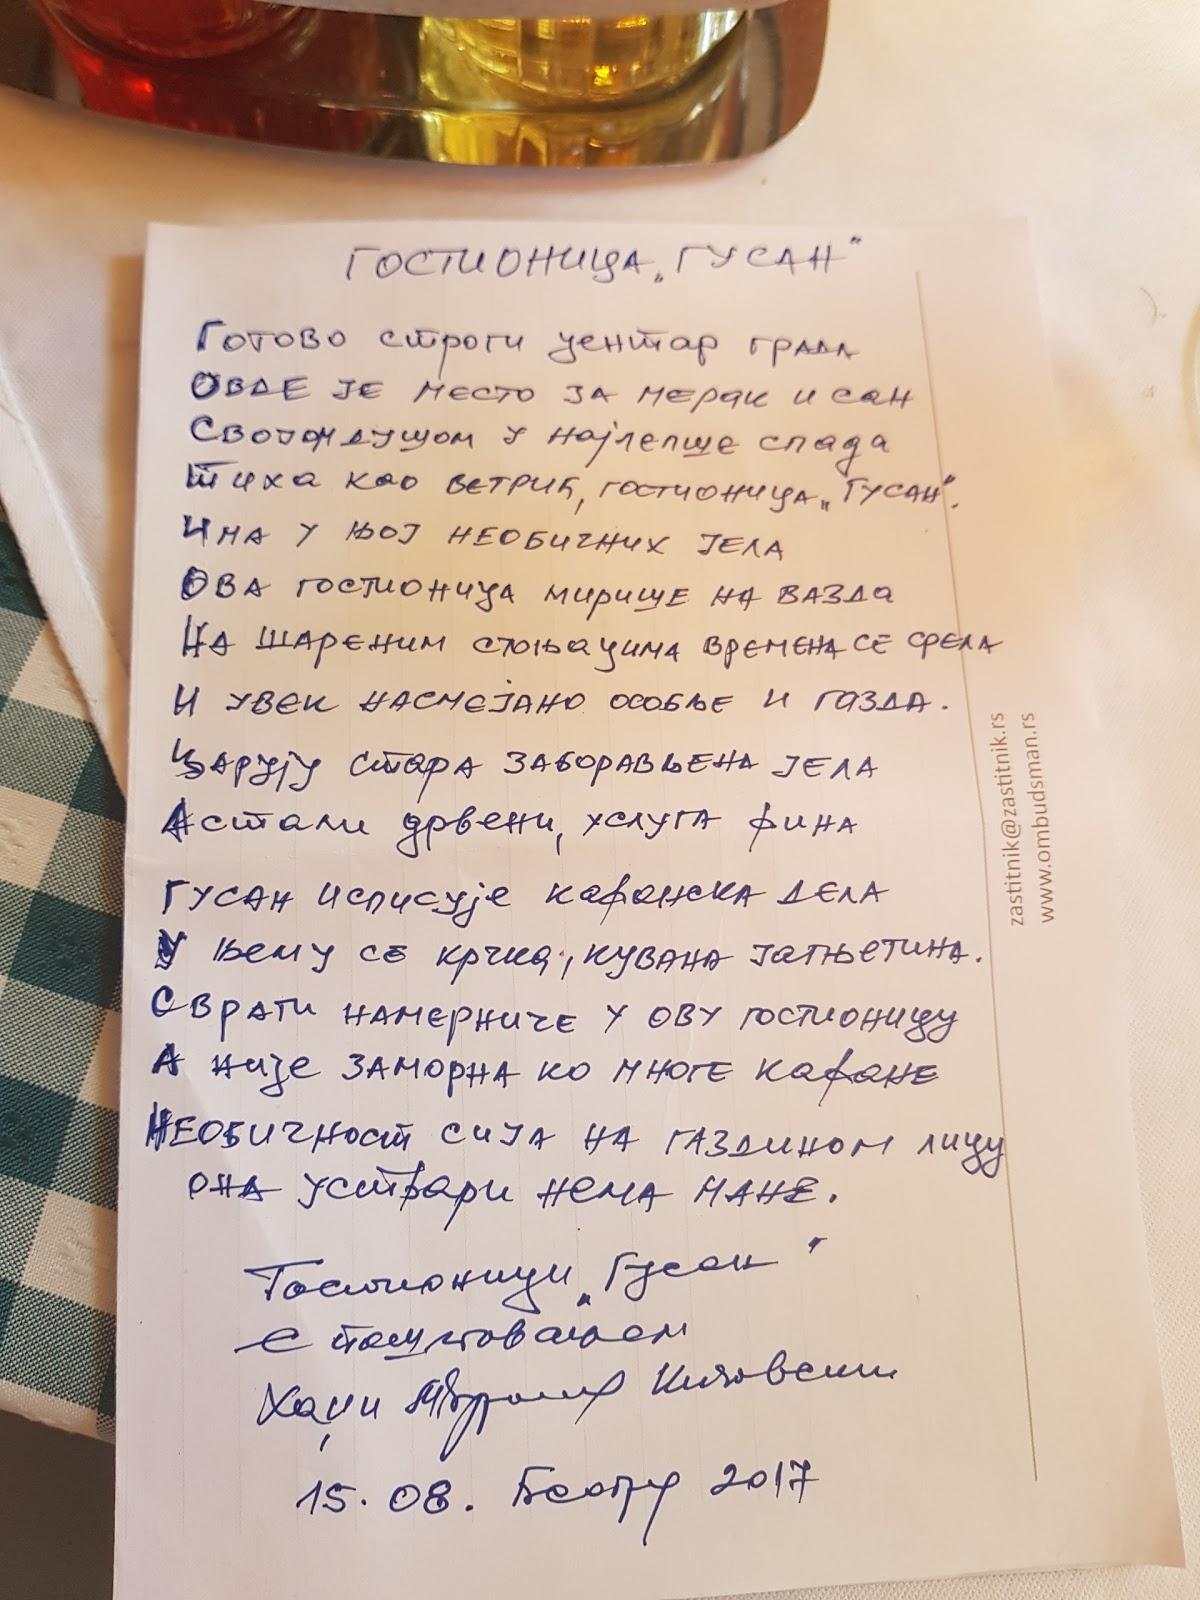 ГОСТИОНИЦА „ГУСАН"
Готово строги центар града
ОВДЕ ЈЕ МЕСТО ЗА МЕРАК И САН
Својом душом у најлепше спада
Тиха као ветрић, гостионица „ГУСАН".
Има у њој необичних јела
Ова гостионица мирише на вазда
На шареним стоњацима времена се срела
И увек насмејано особље и газда.
Царују стара заборављена јела
Астали дрвени, услуга фина
Гусан исписује кафанска дела
У њему се крчка, кувана јагњетина.
Сврати намерниче у ову гостионицу
А није заморна ко многе кафане
Необичност сија на газдином лицу
Она уствари нема мане.
Гостионици „Гусан"
с поштовањем
Хаџи
15.08. Београд 2017
zastitnik@zastitnik.rs
www.ombudsman.rs